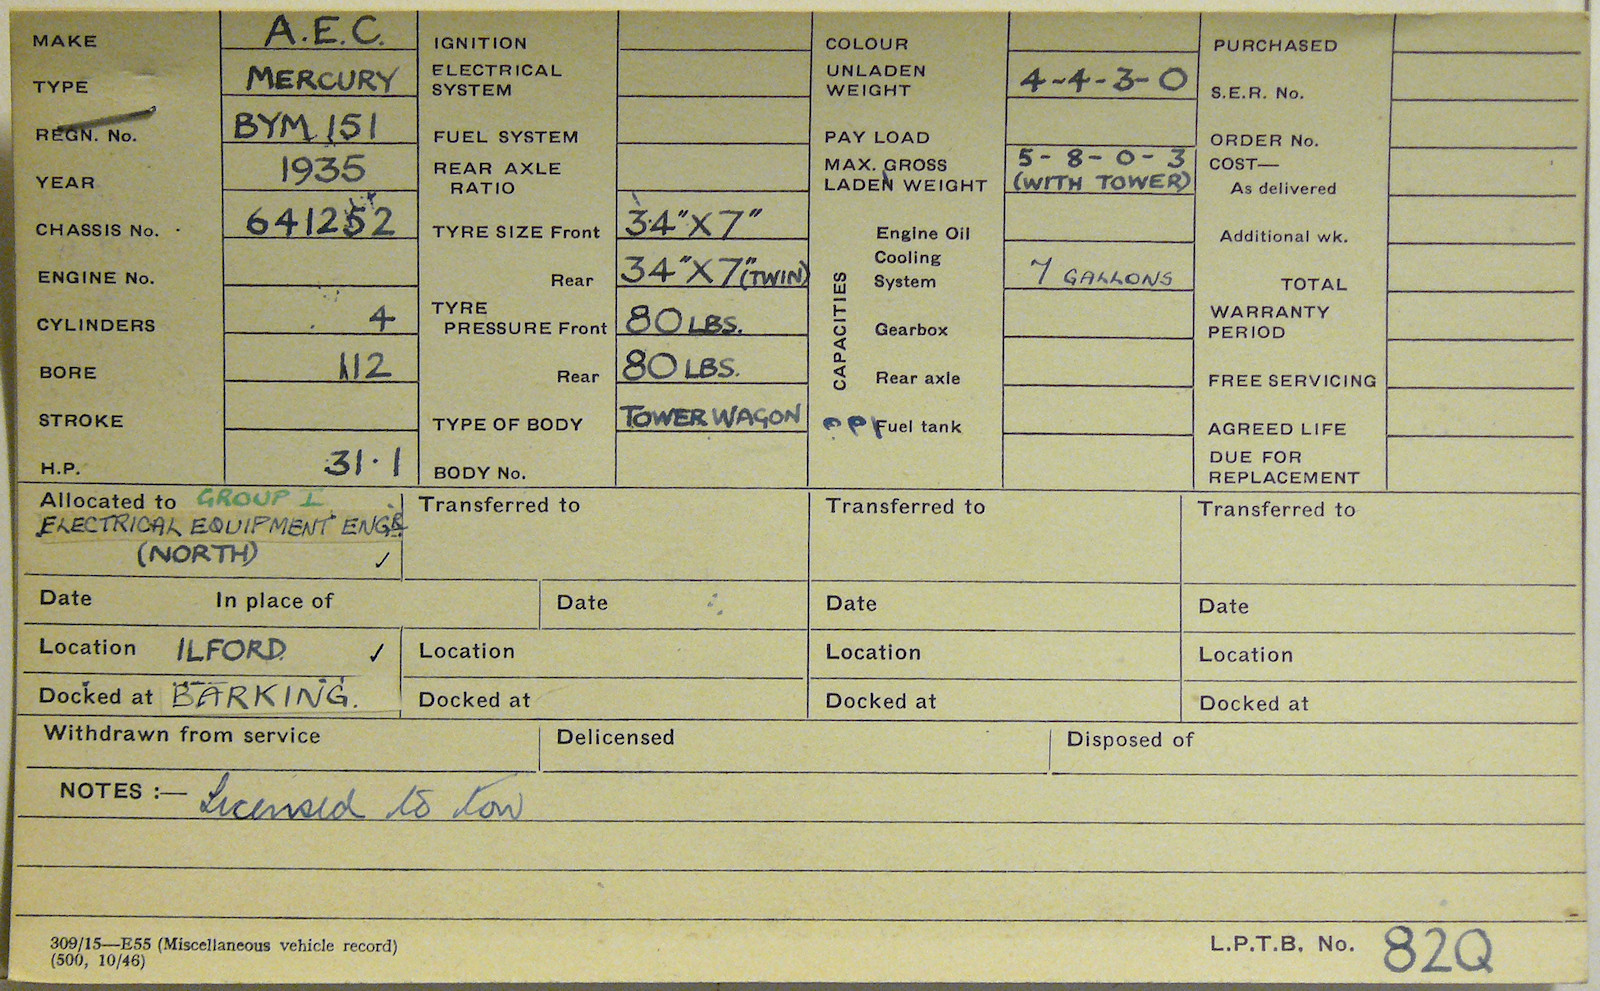 MAKE A.E.C.
TYPE MERCURY
REGN. No. BYM 151
YEAR 1935
CHASSIS No. 641252
ENGINE No.
CYLINDERS 4
BORE 112
STROKE
H.P. 31·1
IGNITION
ELECTRICAL
SYSTEM
FUEL SYSTEM
REAR AXLE
RATIO
TYRE SIZE Front 34"X7"
Rear 34"X7"(TWIN)
TYRE
PRESSURE Front 80 LBS.
Rear 80 LBS.
TYPE OF BODY TOWER WAGON
BODY No.
COLOUR
UNLADEN
WEIGHT 4-4-3-0
PAY LOAD
MAX. GROSS 5-8-0-3
LADEN WEIGHT (WITH TOWER)
CAPACITIES
Engine Oil
Cooling
System 7 GALLONS
Gearbox
Rear axle
Fuel tank
PURCHASED
S.E.R. No.
ORDER No.
COST—
As delivered
Additional wk.
TOTAL
WARRANTY
PERIOD
FREE SERVICING
AGREED LIFE
DUE FOR
REPLACEMENT
Allocated to GROUP I
ELECTRICAL EQUIPMENT ENGR
(NORTH) ✓
Transferred to
Transferred to
Transferred to
Date In place of
Date
Date
Date
Location ILFORD ✓
Location
Location
Location
Docked at BARKING.
Docked at
Docked at
Docked at
Withdrawn from service
Delicensed
Disposed of
NOTES :— Licensed to tow
309/15—E55 (Miscellaneous vehicle record)
(500, 10/46)
L.P.T.B. No. 82Q